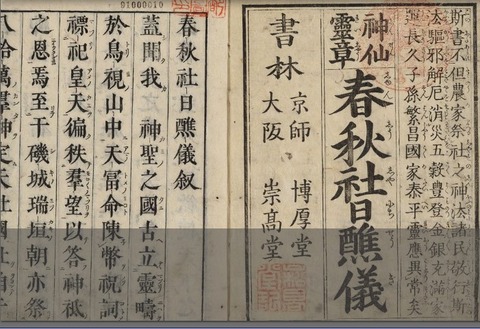 斯書不但農家祭社之神法諸民敬行斯
法驅邪解厄消災五穀豊登金銀充滿家
運長久子孫繁昌國家泰平靈應異常矣
神仙
靈章
春秋社日醮儀
書林
京師 博厚堂
大阪 崇高堂
春秋社日醮儀叙
蓋聞我 神聖之國古立靈畤
於鳥視山中天富命陳幣祝詞
禋祀皇天徧秩羣望以答神祇
之恩焉至于磯城瑞垣朝亦祭
八百萬羣神定天社國社自
91000010